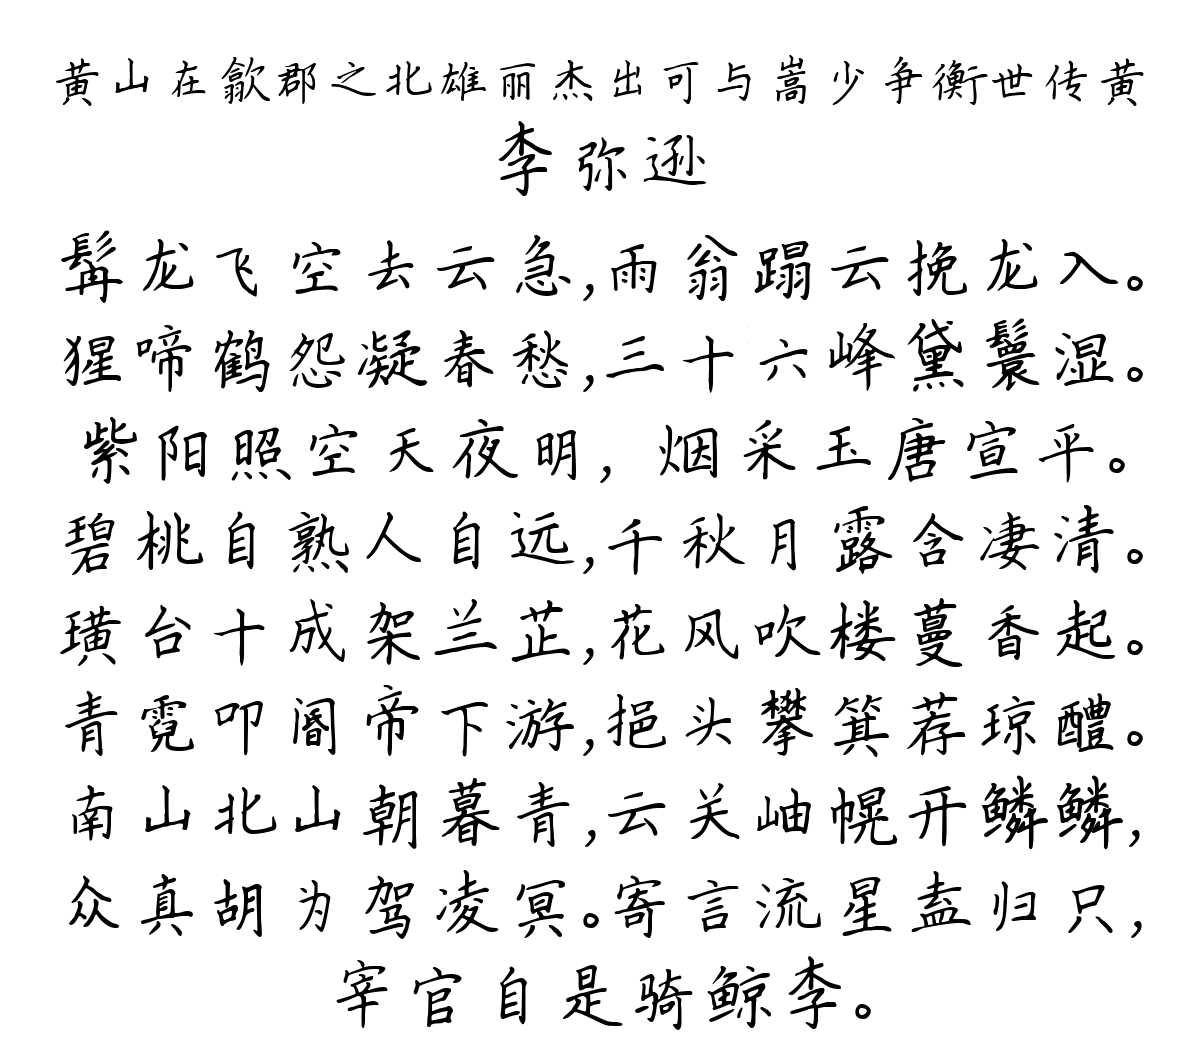 黄山在歙郡之北雄丽杰出可与嵩少争衡世传黄
李弥逊
髯龙飞空去云急,雨翁蹋云挽龙入。
猩啼鹤怨凝春愁,三十六峰黛鬟湿。
紫阳照空天夜明,烟采玉唐宣平。
碧桃自熟人自远,千秋月露含凄清。
璜台十成架兰芷,花风吹楼蔓香起。
青霓叩阍帝下游,挹头攀箕荐琼醴。
南山北山朝暮青,云关岫幌开鳞鳞,
众真胡为驾凌冥。寄言流星盍归只,
宰官自是骑鲸李。